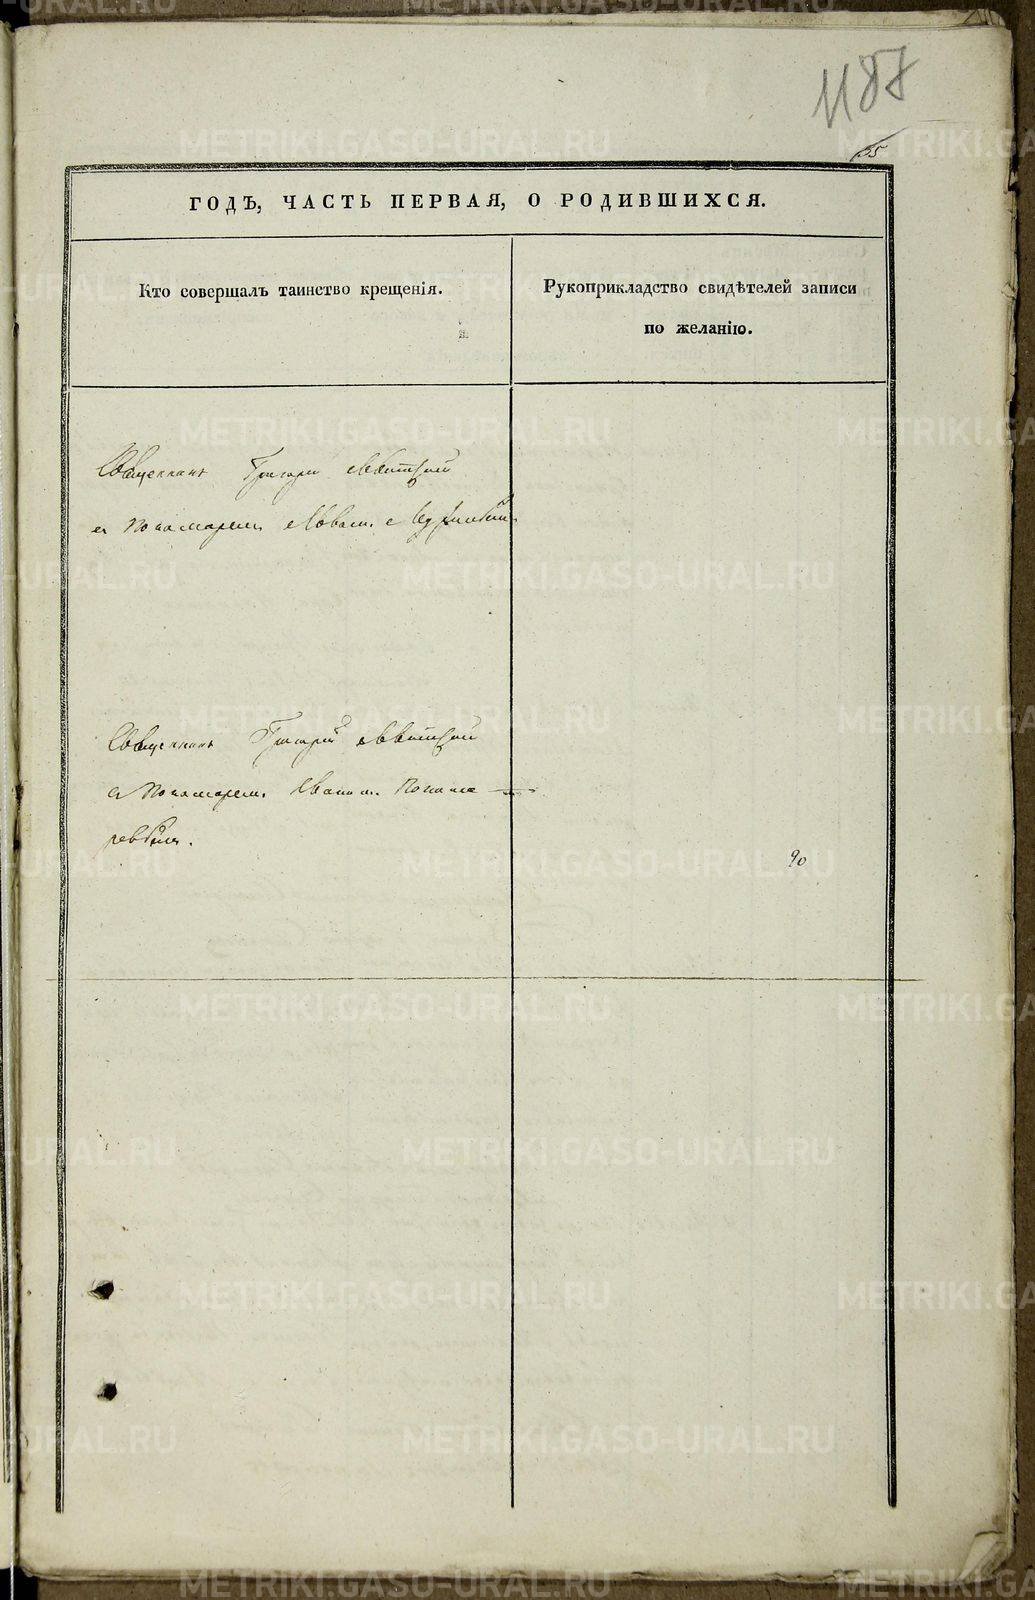 1187
55
ГОДЪ, ЧАСТЬ ПЕРВАЯ, О РОДИВШИХСЯ.
Кто совершалъ таинство крещенія.
Рукоприкладство свидѣтелей записи
по желанію.
Священникъ Григорій
съ Пономаремъ
Священникъ Григорій
съ Пономаремъ Иваномъ Понома-
ревымъ.
90
METRIKI.GASO-URAL.RU